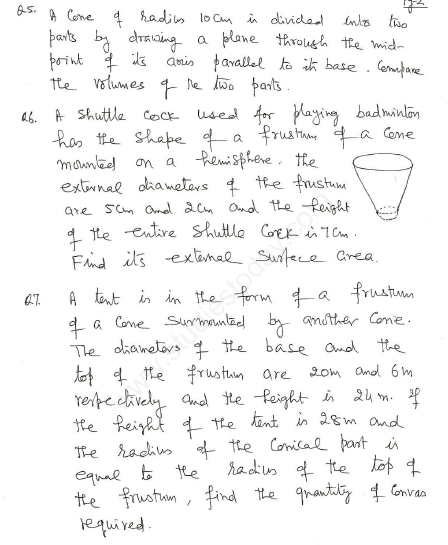 Pg-2
Q5. A Cone of radius 10 Cm is divided into two
parts by drawing a plane through the mid-
point of its axis parallel to its base. Compare
the volumes of the two parts.
Q6. A Shuttle Cock used for playing badminton
has the shape of a frustum of a Cone
mounted on a hemisphere. The
external diameters of the frustum
are 5cm and 2cm and the height
of the entire Shuttle Cock is 7cm.
Find it's external Surface area.
Q7. A tent is in the form of a frustum
of a Cone Surmounted by another Cone.
The diameters of the base and the
top of the frustum are 20m and 6m
respectively and the height is 24m. If
the height of the tent is 28m and
the radius of the Conical part is
equal to the radius of the top of
the frustum, find the quantity of Canvas
required.